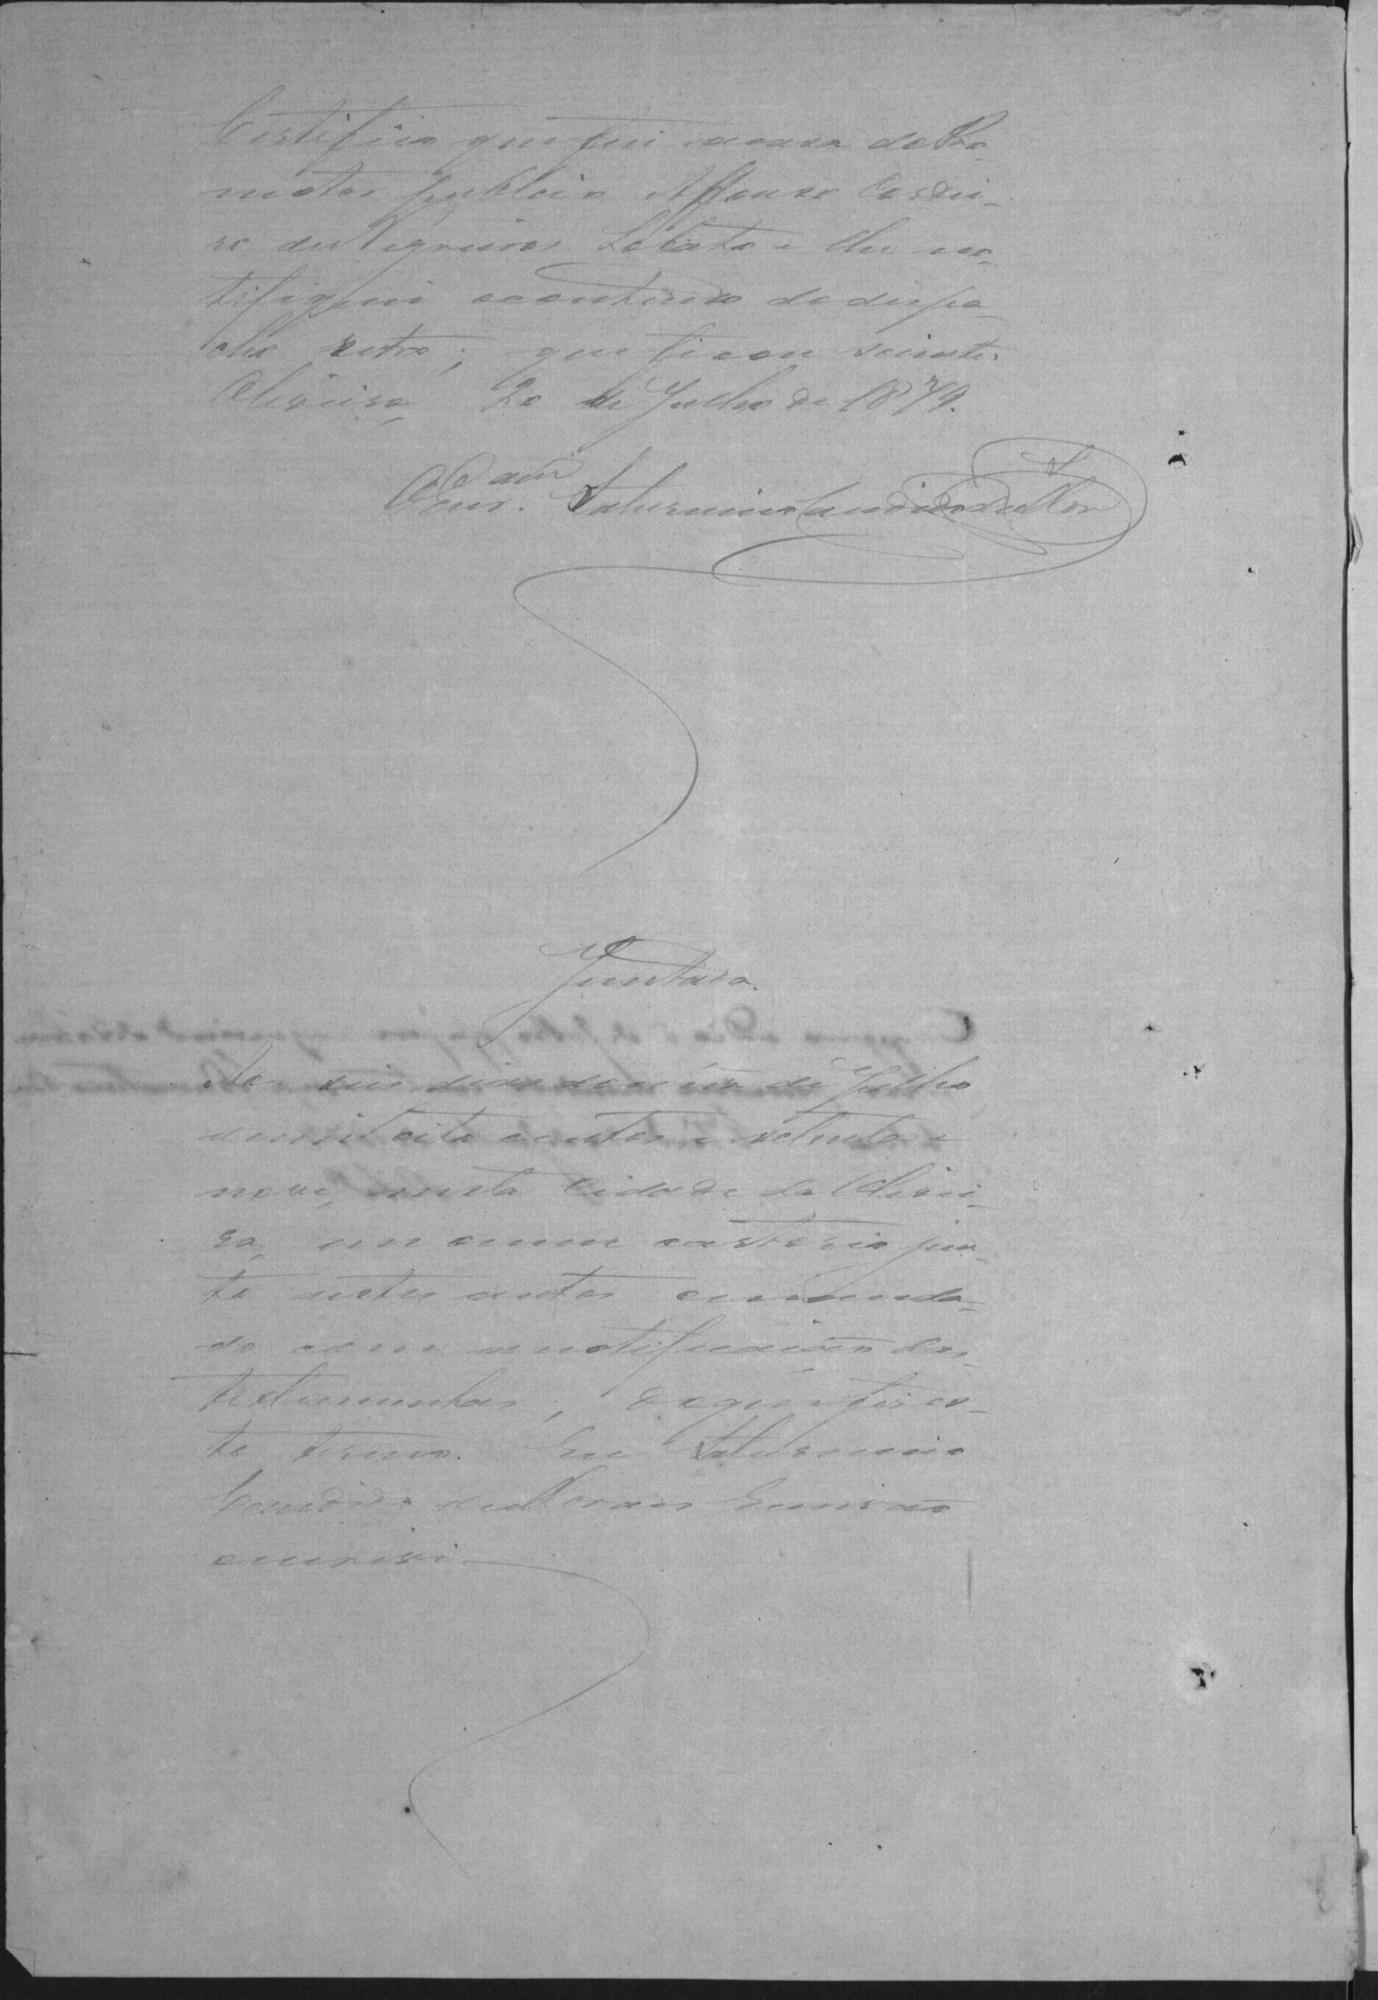 Certifico que fui a casa do Pro-
motor publico Affonso Cordei-
ro de Negreiros Lobato e lhe no-
tifiquei o contheudo do despa-
cho retro; que ficou sciente.
Oliveira, 20 de Julho de 1879.
Saturnino Candido de Mor
Juntada.
Aos seis dias do mes de Julho
de mil oito centos e setenta e
nove, nesta Cidade da Olivei-
ra, em o meu cartorio jun-
to a estes autos o manda-
do com a notificação das
testemunhas, do que fiz es-
te termo. Eu Saturnino
Candido de Moraes Escrivão
o escrevi.